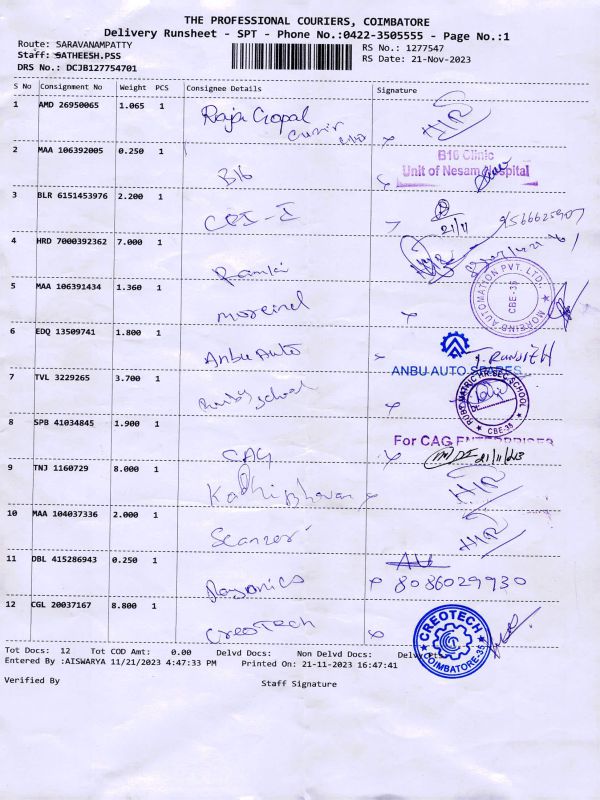 THE PROFESSIONAL COURIERS, COIMBATORE
Delivery Runsheet - SPT - Phone No.:0422-3505555 - Page No.:1
Route: SARAVANAMPATTY
RS No.: 1277547
Staff: SATHEESH.PSS
RS Date: 21-Nov-2023
DRS No.: DCJB127754701
S No Consignment No Weight PCS Consignee Details Signature
1 AMD 26950065 1.065 1 Raja Gopal
2 MAA 106392005 0.250 1 B16
B16 Clinic
Unit of Nesam Hospital
3 BLR 6151453976 2.200 1
21/11
4 HRD 7000392362 7.000 1 Ramki
5 MAA 106391434 1.360 1
AUTOMATION PVT. LTD.
CBE-35
6 EDQ 13509741 1.800 1 Anbu Auto
ANBU AUTO SPARES
7 TVL 3229265 3.700 1 school
MATRIC HR.SEC.SCHOOL
CBE-35
8 SPB 41034845 1.900 1 CAG
For CAG ENTERPRISES
21/11/23
9 TNJ 1160729 8.000 1 Kadhi Bhavan
10 MAA 104037336 2.000 1
11 DBL 415286943 0.250 1 8086029930
12 CGL 20037167 8.800 1 CreoTech
CREOTECH
COIMBATORE-35
Tot Docs: 12 Tot COD Amt: 0.00 Delvd Docs: Non Delvd Docs:
Entered By :AISWARYA 11/21/2023 4:47:33 PM Printed On: 21-11-2023 16:47:41
Verified By Staff Signature